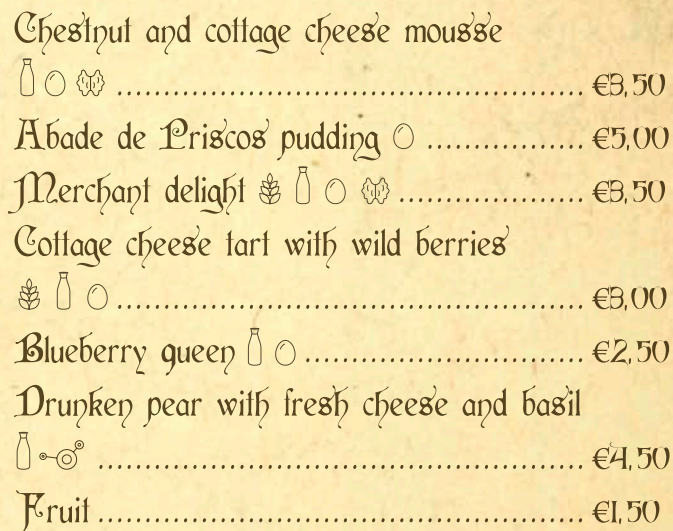 Chestnut and cottage cheese mousse
........................................................ €3,50
Abade de Priscos pudding ................. €5,00
Merchant delight .................... €3,50
Cottage cheese tart with wild berries
........................................................ €3,00
Blueberry queen .............................. €2,50
Drunken pear with fresh cheese and basil
.......................................................... €4,50
Fruit .......................................................... €1,50